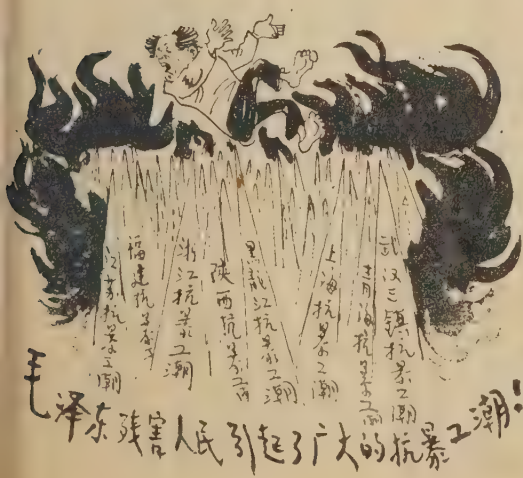 江苏抗暴工潮
福建抗暴工
浙江抗暴工潮
陕西抗暴工
黑龍江抗暴工潮
上海抗暴工潮
青海抗暴工
武汉三镇抗暴工潮
毛泽东残害人民引起了广大的抗暴工潮!